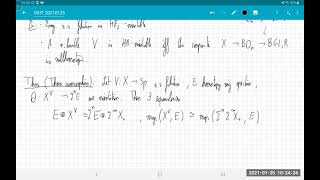 ISHT 20210125
is HF₂-orientable
A v. bundle V is HR-orientable iff the composite X → BO_n → BGL_1 R
is nullhomotopic.
Thm (Thom isomorphism). Let V: X → Sp a s. fibration, E homotopy ring spectrum,
θ: X^V → Σ^n E an orientation. Then ∃ equivalences
E ⊗ X^V ≃ Σ^n E ⊗ Σ^∞ X_+ , map (X^V, E) ≃ map (Σ^n Σ^∞ X_+, E)
2021-01-25 10:24:24